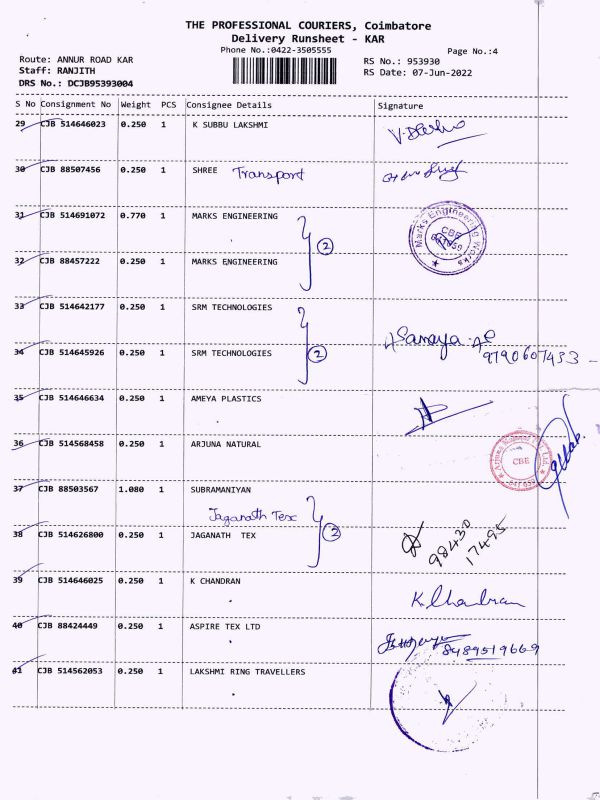 THE PROFESSIONAL COURIERS, Coimbatore
Delivery Runsheet - KAR
Phone No.:0422-3505555
Page No.:4
Route: ANNUR ROAD KAR
RS No.: 953930
Staff: RANJITH
RS Date: 07-Jun-2022
DRS No.: DCJB95393004
S No Consignment No Weight PCS Consignee Details Signature
29 CJB 514646023 0.250 1 K SUBBU LAKSHMI
30 CJB 88507456 0.250 1 SHREE Transport
31 CJB 514691072 0.770 1 MARKS ENGINEERING
2
Marks Engineering Works CBE
32 CJB 88457222 0.250 1 MARKS ENGINEERING
33 CJB 514642177 0.250 1 SRM TECHNOLOGIES
2
9790607433
34 CJB 514645926 0.250 1 SRM TECHNOLOGIES
35 CJB 514646634 0.250 1 AMEYA PLASTICS
36 CJB 514568458 0.250 1 ARJUNA NATURAL
CBE
37 CJB 88503567 1.080 1 SUBRAMANIYAN
Jaganath Tex
2
98430
17495
38 CJB 514626800 0.250 1 JAGANATH TEX
39 CJB 514646025 0.250 1 K CHANDRAN
K. Chandran
40 CJB 88424449 0.250 1 ASPIRE TEX LTD
8489519669
41 CJB 514562053 0.250 1 LAKSHMI RING TRAVELLERS